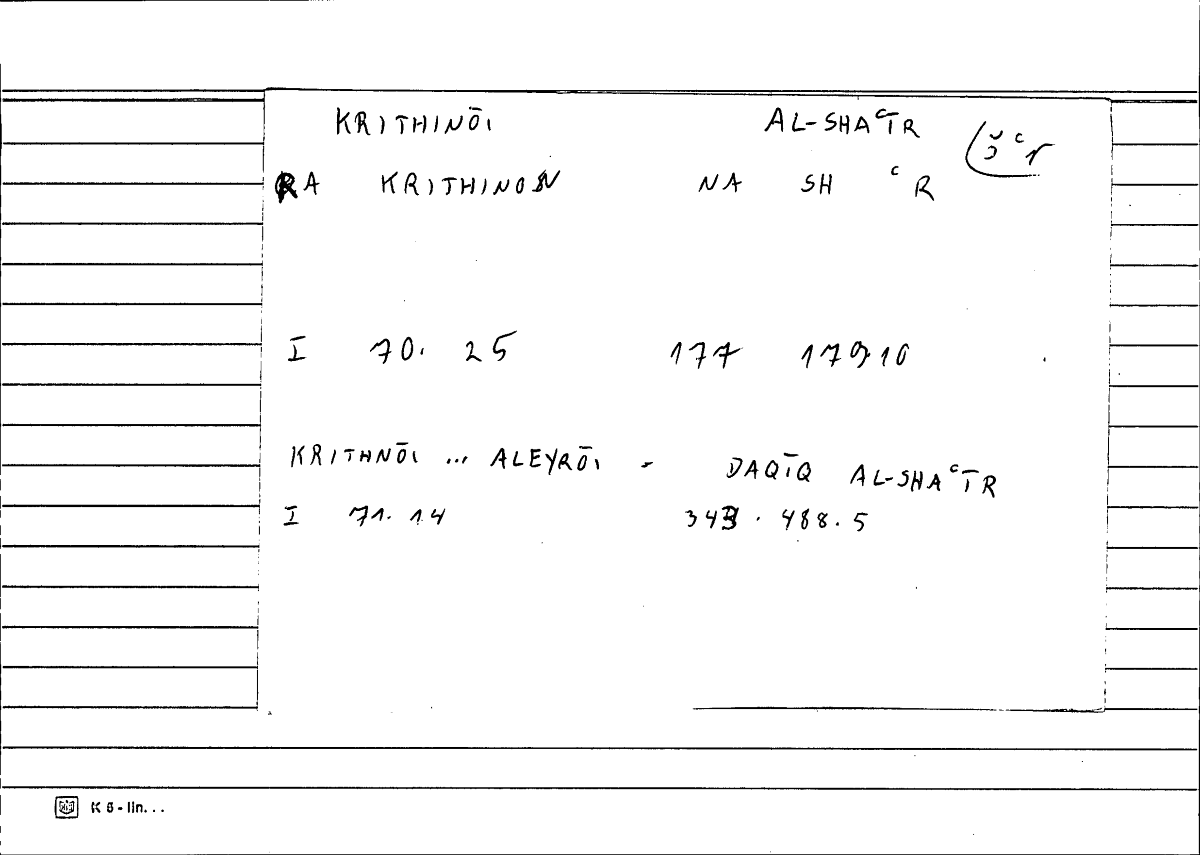 KRITHINŌI AL-SHAᶜĪR šᶜr
RA KRITHINON NA SH ᶜ R
I 70. 25 177 179,10
KRITHNŌI ... ALEYRŌI - DAQĪQ AL-SHAᶜĪR
I 71. 14 343. 488. 5
K 6 - lin...